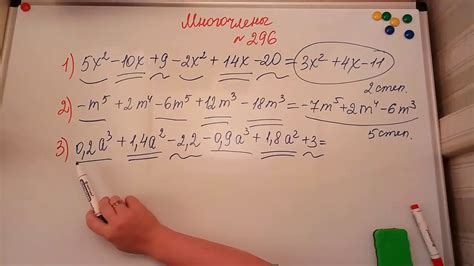 Многочлены
№ 296
1) 5x² - 10x + 9 - 2x² + 14x - 20 = 3x² + 4x - 11
2 степ.
2) -m⁵ + 2m⁴ - 6m⁵ + 12m³ - 18m³ = -7m⁵ + 2m⁴ - 6m³
5 степ.
3) 0,2a³ + 1,4a² - 2,2 - 0,9a³ + 1,8a² + 3 =